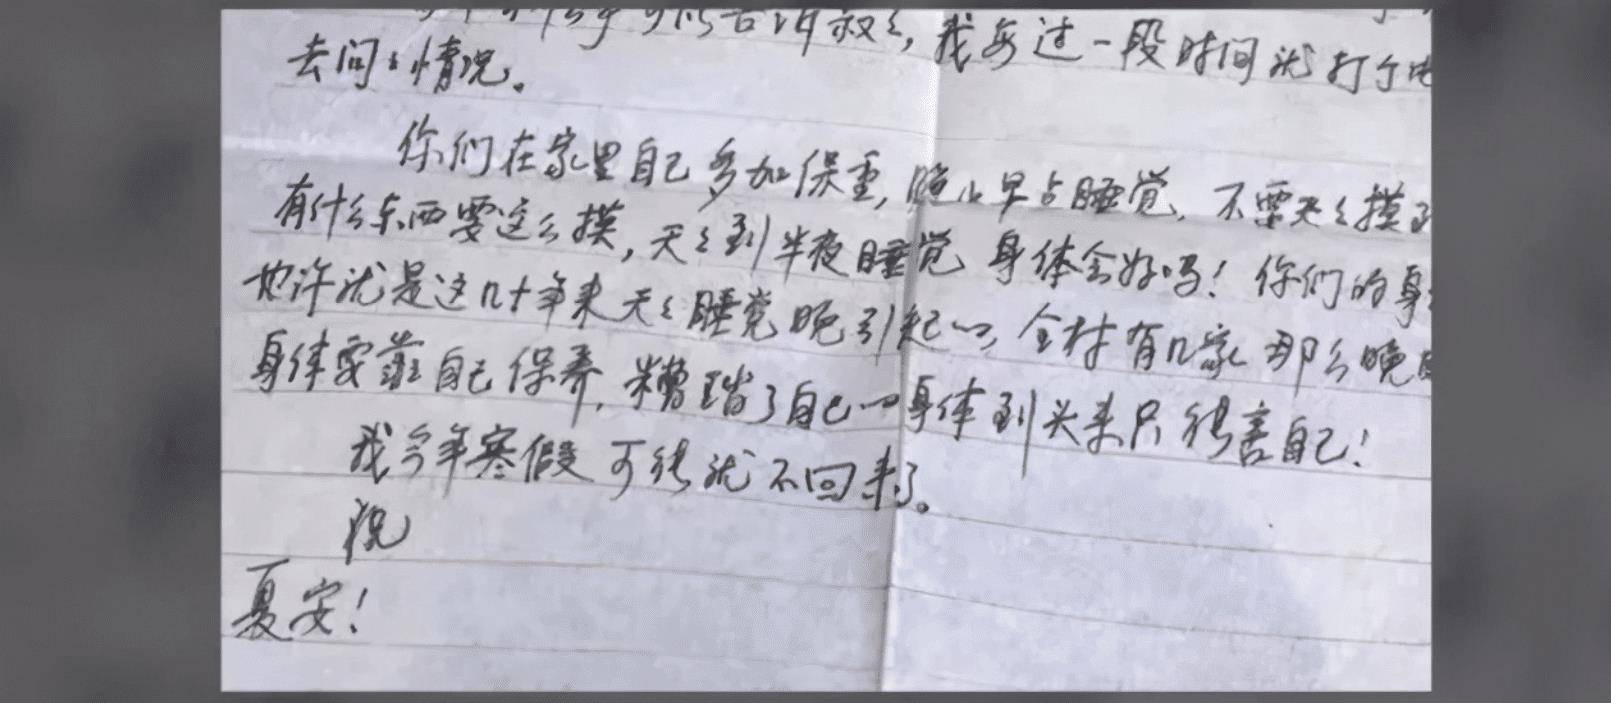 叔々，我每过一段时间就打个电
去问々情况。
你们在家里自己多加保重，晚上早点睡觉，不要天々摸到
有什么东西要这么摸，天々到半夜睡觉 身体会好吗！你们的身
也许就是这几十年来天々睡觉晚引起的，全村有几家那么晚
身体要靠自己保养，糟蹋了自己的身体到头来只能害自己！
我今年寒假可能就不回来了。
祝
夏安！